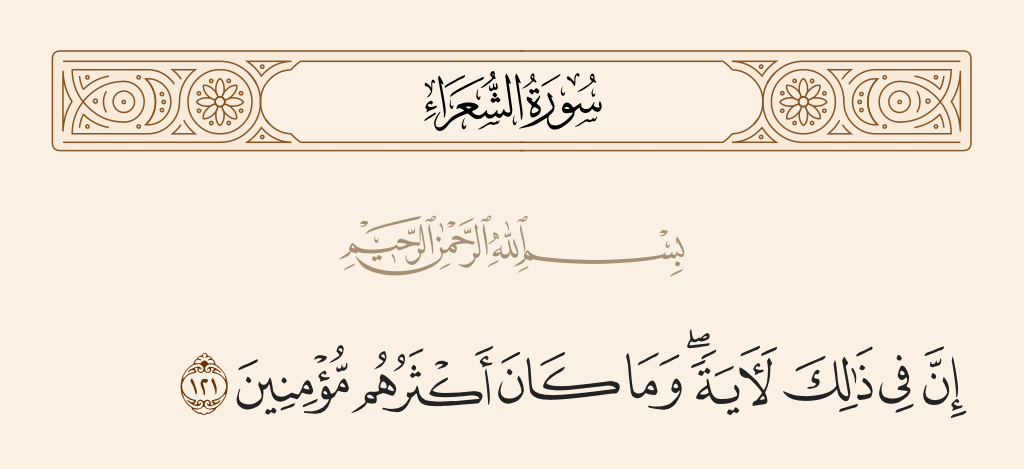 سُورَةُ الشُّعَرَاءِ
بِسْمِ ٱللَّهِ ٱلرَّحْمَٰنِ ٱلرَّحِيمِ
إِنَّ فِى ذَٰلِكَ لَـَٔايَةًۖ وَمَا كَانَ أَكْثَرُهُم مُّؤْمِنِينَ ١٢١